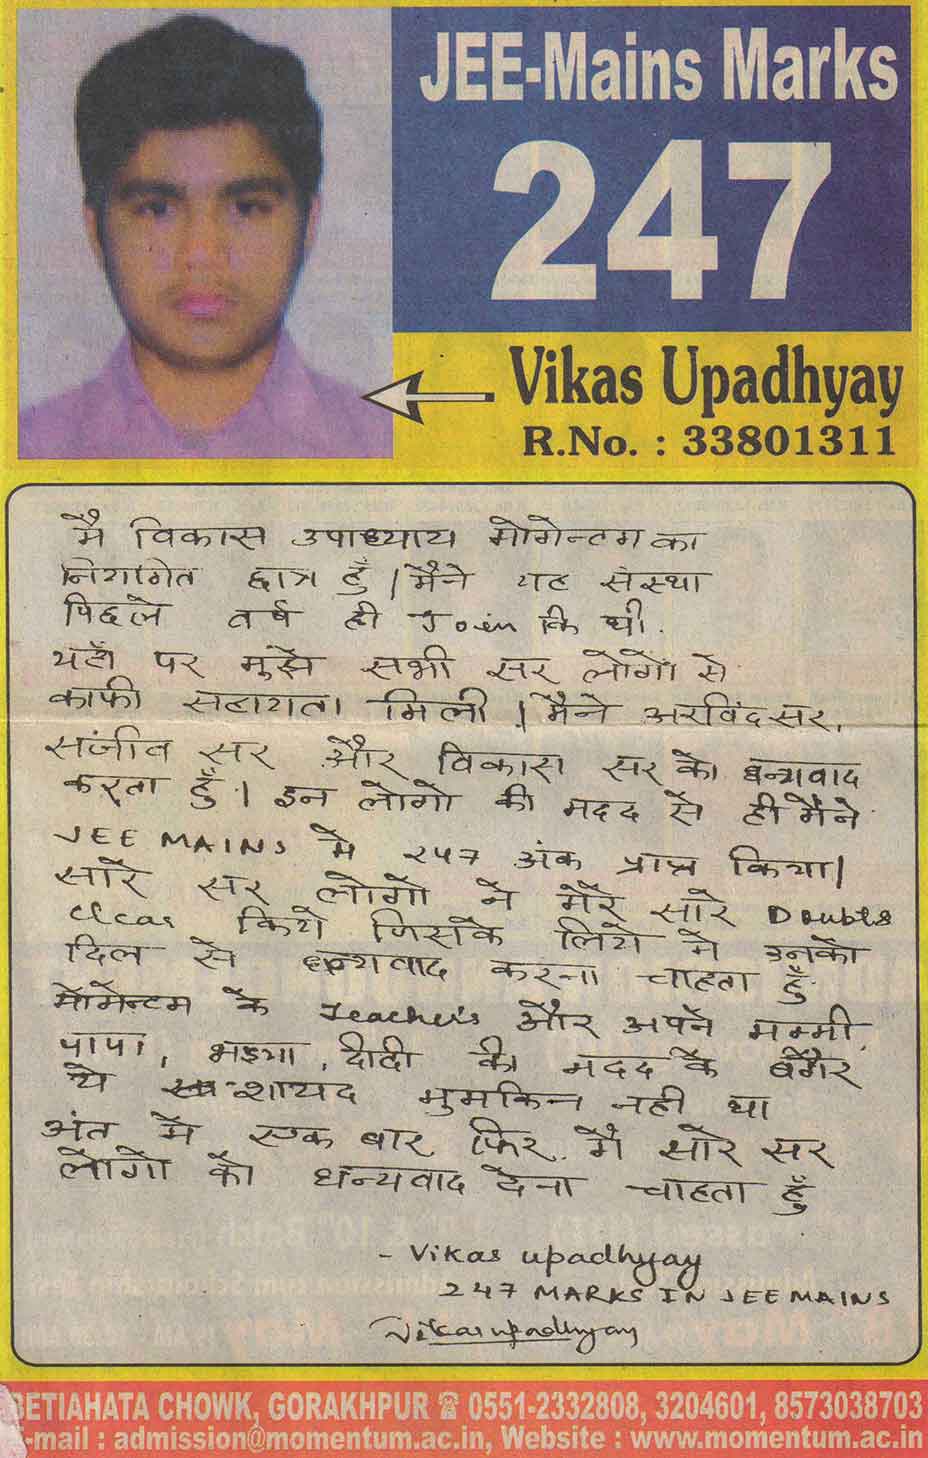 JEE-Mains Marks
247
Vikas Upadhyay
R.No. : 33801311
मै विकास उपाध्याय मोमेन्टम का
नियमित छात्र हुँ। मैने यह संस्था
पिछले वर्ष ही Join कि थी.
यहाँ पर मुझे सभी सर लोगों से
काफी सहायता मिली। मैने अरविंद सर,
संजीव सर और विकास सर को धन्यवाद
करता हुँ। इन लोगो की मदद से ही मैने
JEE MAINS मे 247 अंक प्राप्त किया।
सारे सर लोगो ने मेरे सारे Doubts
clear किये जिसके लिये मे उनको
दिल से धन्यवाद करना चाहता हुँ.
मोमेन्टम के Teacher's और अपने मम्मी,
पापा, भइया, दीदी की मदद के बैगैर
ये शायद मुमकिन नही था
अंत मे एक बार फिर मै सारे सर
लोगो को धन्यवाद देना चाहता हुँ
- Vikas upadhyay
247 MARKS IN JEE MAINS
Vikas upadhyay
BETIAHATA CHOWK, GORAKHPUR ☎ 0551-2332808, 3204601, 8573038703
E-mail : admission@momentum.ac.in, Website : www.momentum.ac.in